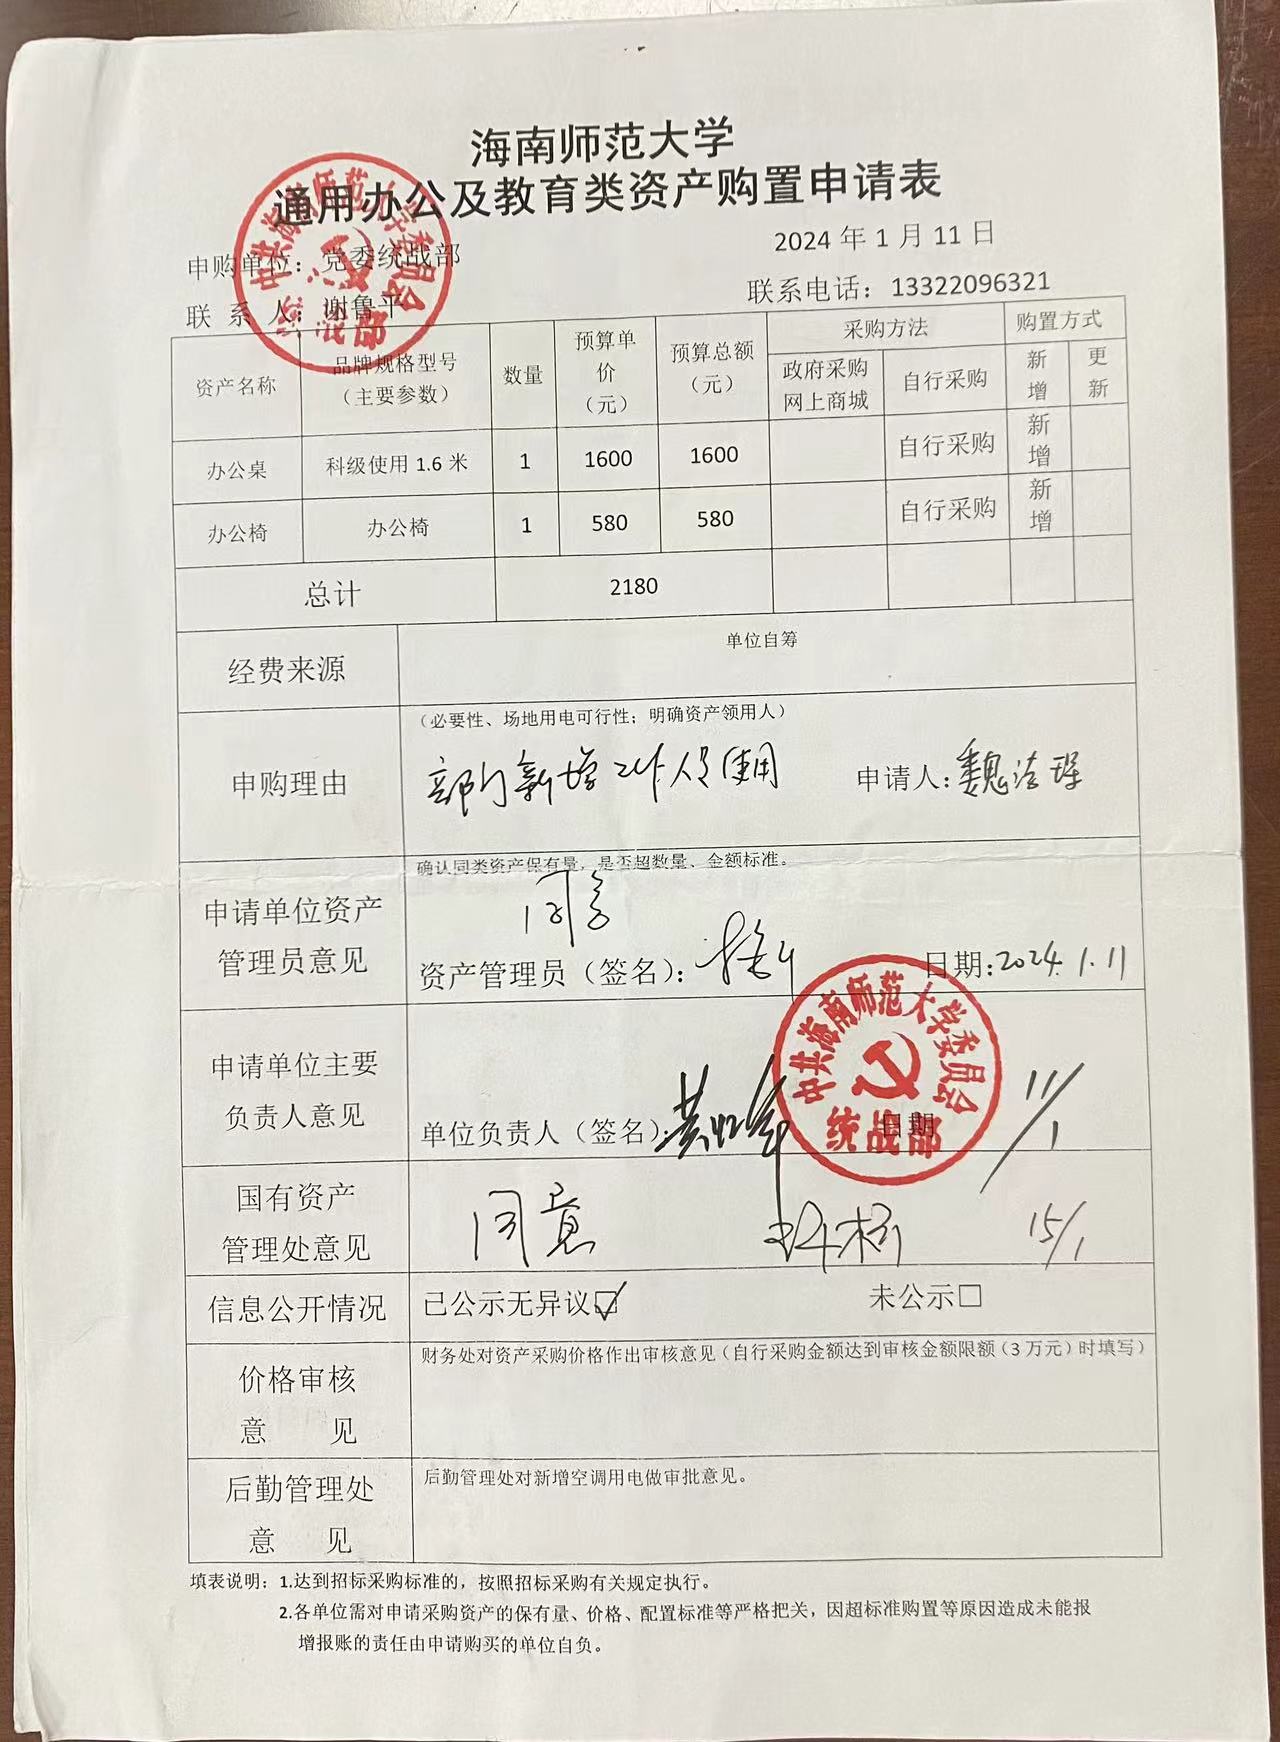 海南师范大学
通用办公及教育类资产购置申请表
2024 年 1 月 11 日
申购单位：党委统战部
联系电话：13322096321
联 系 人：谢鲁平
中共海南师范大学委员会
统战部
资产名称 品牌规格型号（主要参数） 数量 预算单价（元） 预算总额（元） 采购方法 购置方式
政府采购网上商城 自行采购 新增 更新
办公桌 科级使用 1.6 米 1 1600 1600 自行采购 新增
办公椅 办公椅 1 580 580 自行采购 新增
总计 2180
经费来源 单位自筹
申购理由 （必要性、场地用电可行性；明确资产领用人）
部门新增工作人员使用 申请人：魏洁琛
申请单位资产管理员意见 确认同类资产保有量，是否超数量、金额标准。
同意
资产管理员（签名）： 日期：2024.1.11
申请单位主要负责人意见
单位负责人（签名）： 日期 11/1
中共海南师范大学委员会
统战部
国有资产管理处意见 同意 15/1
信息公开情况 已公示无异议☑ 未公示□
价格审核意 见 财务处对资产采购价格作出审核意见（自行采购金额达到审核金额限额（3 万元）时填写）
后勤管理处意 见 后勤管理处对新增空调用电做审批意见。
填表说明：1.达到招标采购标准的，按照招标采购有关规定执行。
2.各单位需对申请采购资产的保有量、价格、配置标准等严格把关，因超标准购置等原因造成未能报
增报账的责任由申请购买的单位自负。